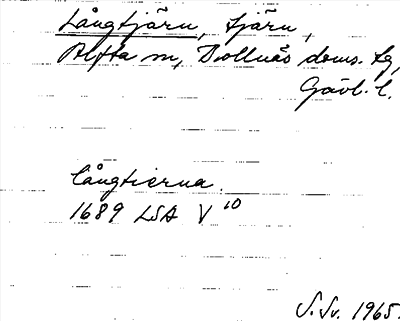 Långtjärn, tjärn,
Alfta sn, Bollnäs doms. tg,
Gävl. l.
långtierna
1689 LSA V 10
S. Sv. 1965.